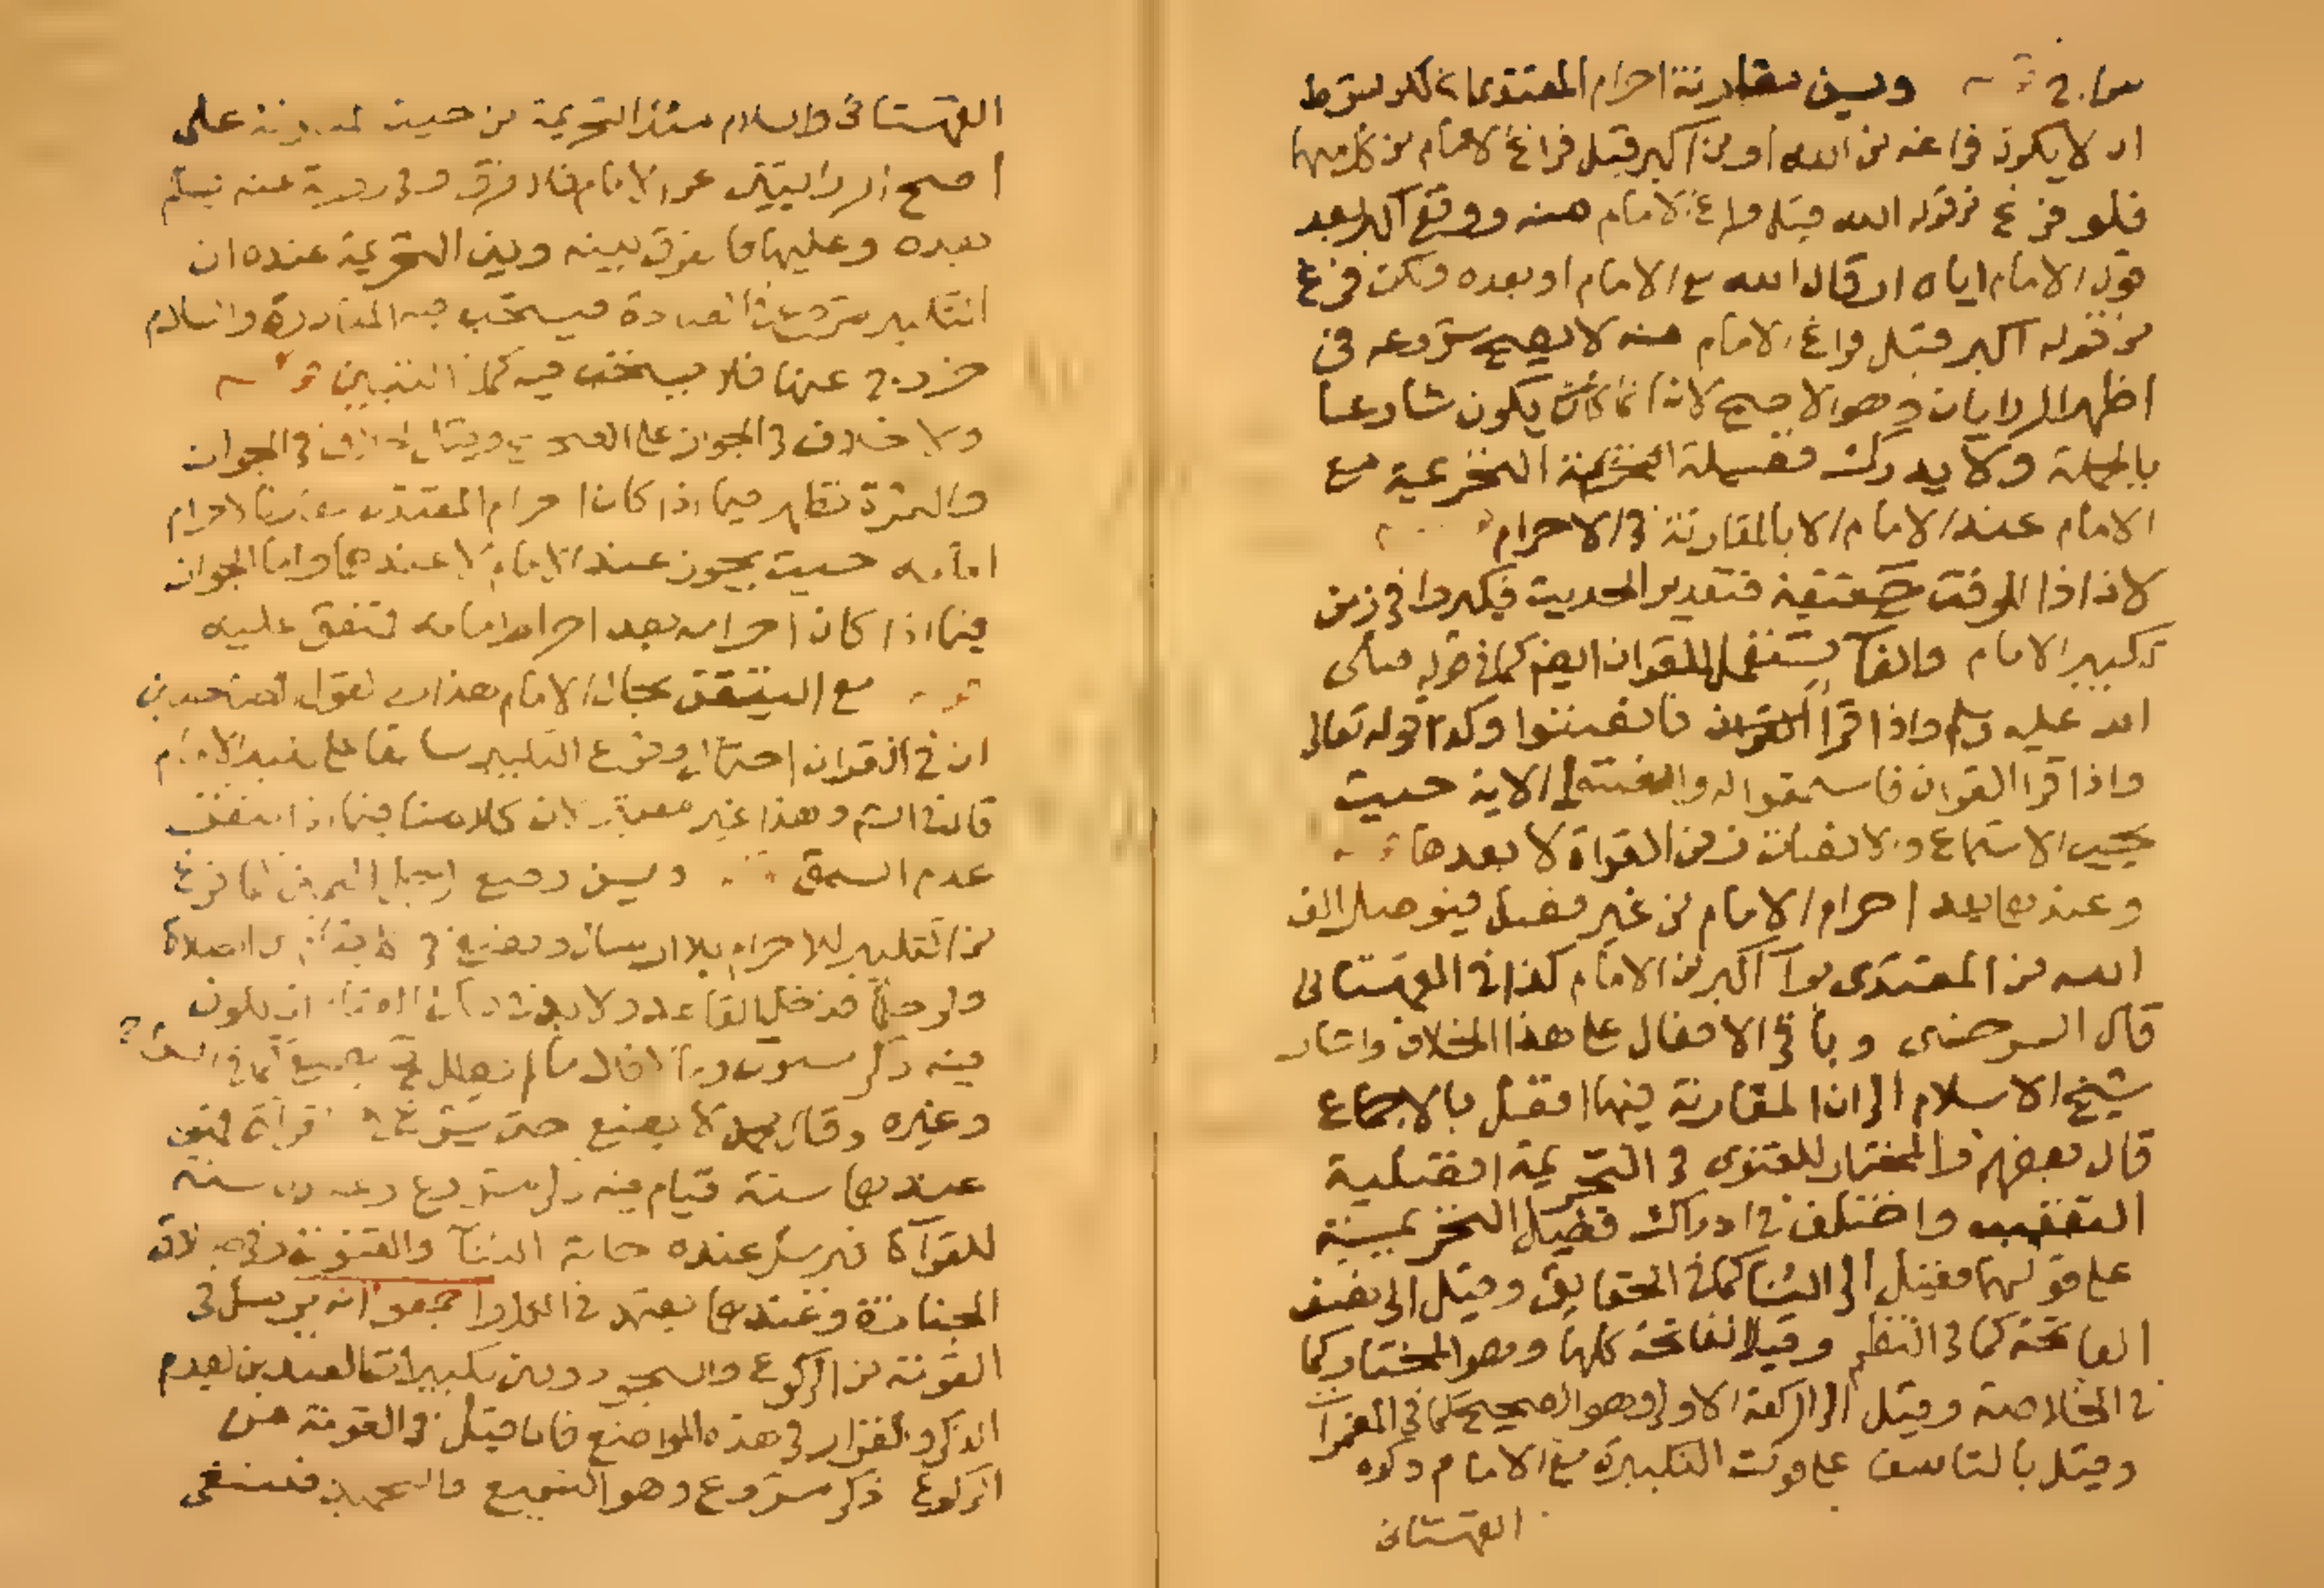 ويسن مقارنة احرام المقتدى بشرط
ان لا يكون فراغه من الله او من اكبر قبل فراغ الامام من كل منهما
فلو فرغ من قوله الله قبل فراغ الامام منه ووقع اكبر بعد
قول الامام اياه او قال الله مع الامام او بعده ولكن فرغ
من قوله اكبر قبل فراغ الامام منه لا يصح شروعه في
اظهر الروايات وهو الاصح لانه انما يكون شارعا
بالجملة ولا يدرك فضيلة التحريمة مع
الامام عند الامام الا بالمقارنة في الاحرام
لان اذا للوقت حقيقة فتقدير الحديث فكبروا في زمن
تكبير الامام والفآ يستعمل للقران ايض كما في قوله صلى
الله عليه وسلم واذا قرأ القران فانصتوا وكذا قوله تعالى
واذا قرأ القران فاستمعوا له وانصتوا الاية حيث
يجب الاستماع والانصات زمن القراة لا بعدها
وعندهما بعد احرام الامام من غير فصل فيوصل الف
الله من المقتدى برآ اكبر من الامام كذا في القهستانى
قال السرخسى وباقى الافعال على هذا الخلاف واشار
شيخ الاسلام الى ان المقارنة فيها افضل بالاجماع
قال بعضهم والمختار للفتوى في التحريمة افضلية
التعقيب واختلف في ادراك فضيلة التحريمة
على قولهما فقيل الى الثنا كما في الحقايق وقيل الى نصف
الفاتحة كما في النظم وقيل الفاتحة كلها وهو المختار كما
في الخلاصة وقيل الى الركعة الاولى وهو الصحيح كما في المضمرات
وقيل بالتاسف على فوت التكبيرة مع الامام ذكره
القهستانى
القهستانى والسلام مثل التحريمة من حيث المقارنة على
اصح الروايتين عن الامام فلا فرق وفى رواية عنه يسلم
بعده وعليها فالفرق بينه وبين التحريمة عنده ان
التكبير شروع في العبادة فيستحب فيه المبادرة والسلام
خروج عنها فلا يستحب فيه كذا في التبيين
ولا خلاف في الجواز على الصحيح وقيل الخلاف في الجواز
والثمرة تظهر فيما اذا كان احرام المقتدى مقارنا لاحرام
امامه حيث يجوز عند الامام لا عندهما واما الجواز
فيما اذا كان احرامه بعد احرام امامه فمتفق عليه
مع التيقن بحال الامام هذا رد لقول
ان في القران احتمال وقوع التكبير سابقا على تكبير الامام
قال في الشرح وهذا غير معتبر لان كلامنا فيما اذا تيقن
عدم السبق ويسن وضع الرجل اليمين كما فرغ
من التكبير للاحرام بلا ارسال ويضع في كل قيام من الصلاة
ولو حكما فدخل القاعد ولا بد في ذلك القيام ان يكون
فيه ذكر مسنون وما لا فلا ما لم يطل فيضع كما في السراج
وغيره وقال محمد لا يضع حتى يشرع في القراة فهو
عندهما سنة قيام فيه ذكر مشروع وعنده سنة
للقرآة فيرسل عنده حالة الثنآ والقنوت وفى صلاة
الجنازة وعندهما يعتمد في الكل واجمعوا انه يرسل في
القومة من الركوع والسجود وبين تكبيرات العيدين لعدم
الذكر والقرار في هذه المواضع فان قيل في القومة من
الركوع ذكر مشروع وهو التسميع والتحميد فينبغى